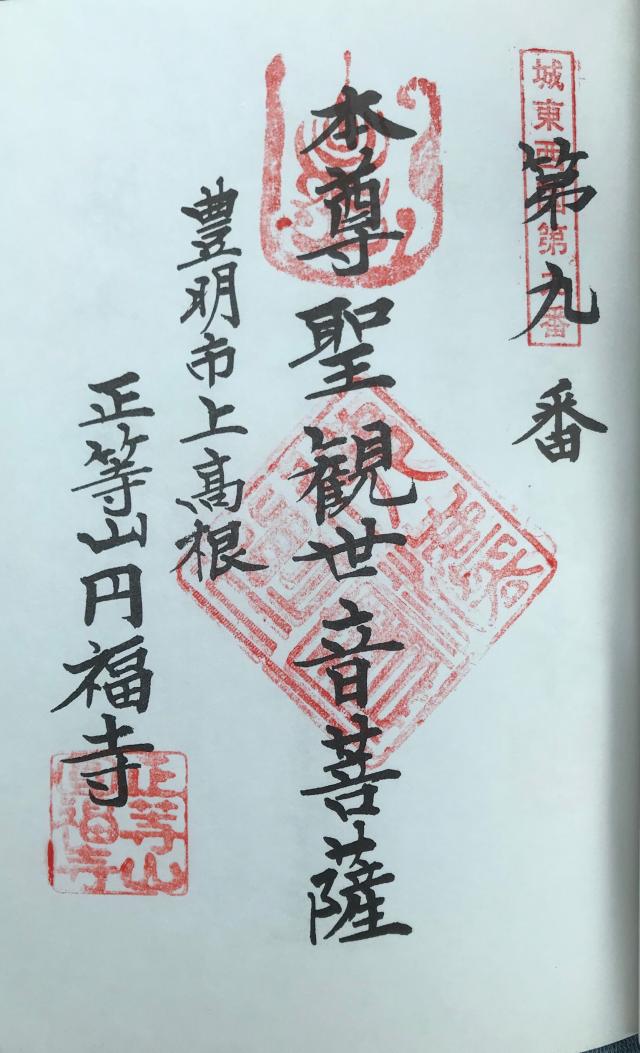 城東西国第九番
第九番
本尊聖観世音菩薩
豊明市上高根
正等山円福寺
正等山
圓福寺